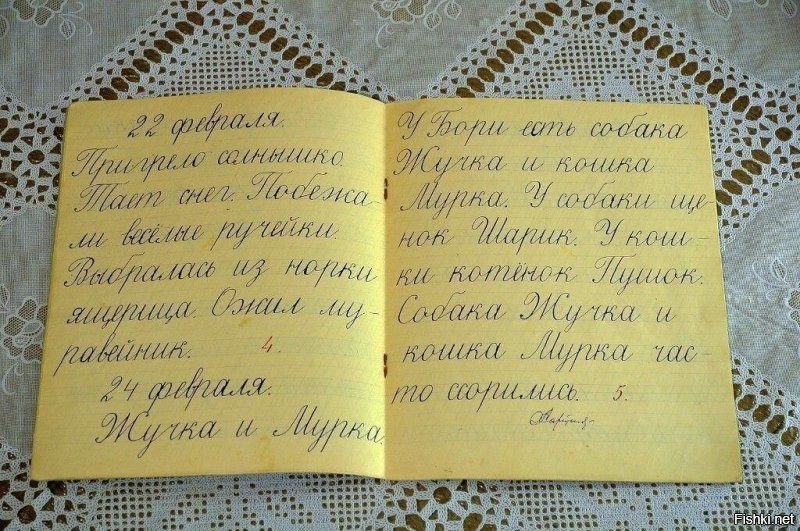 22 февраля.
Пригрело солнышко.
Тает снег. Побежа-
ли весёлые ручейки.
Выбралась из норки
ящерица. Ожил му-
равейник. 4.
24 февраля.
Жучка и Мурка.
У Бори есть собака
Жучка и кошка
Мурка. У собаки ще-
нок Шарик. У кош-
ки котёнок Пушок.
Собака Жучка и
кошка Мурка час-
то ссорились. 5.
Fishki.net